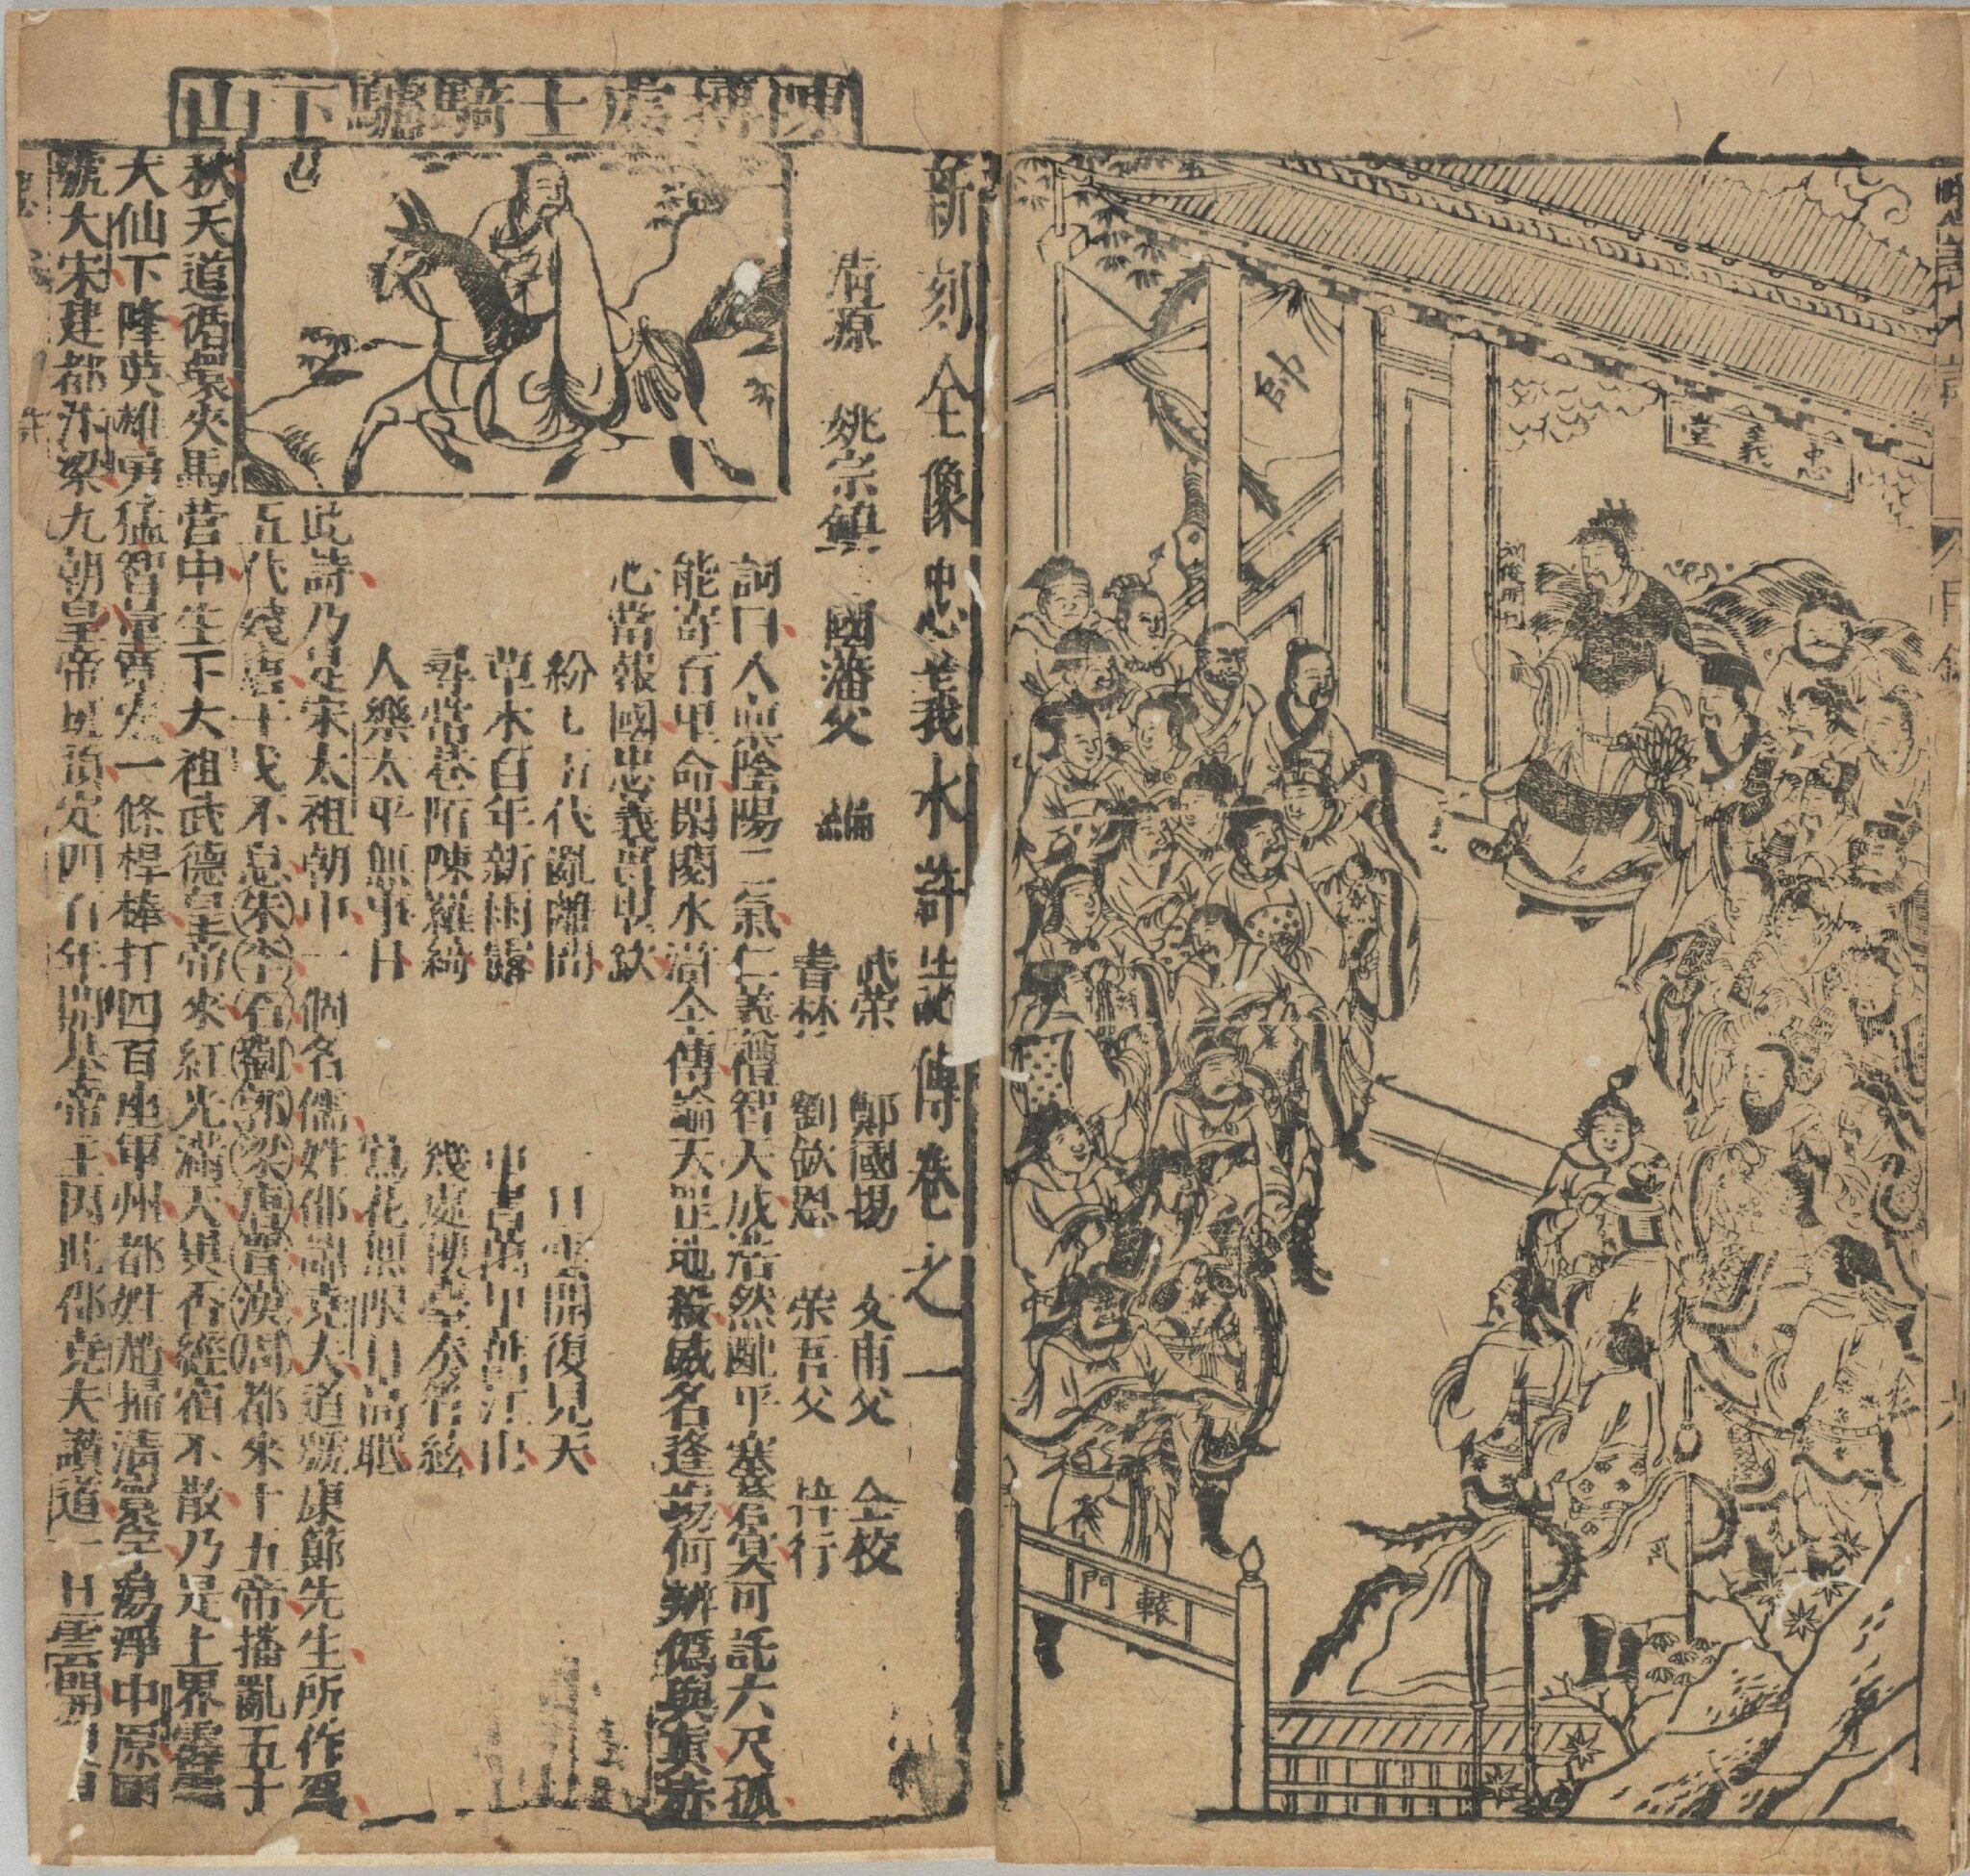 帥
忠義堂
轅門
新刻全像忠義水滸誌傳卷之一
清源 姚宗鎮 國藩父 編
武榮 鄭國揚 文甫父 仝校
書林 劉欽恩 榮吾父 梓行
陳摶處士騎驢下山
詞曰人與陰陽二氣仁義禮智天成浩然配乎塞蒼冥可託六尺孤
能寄百里命閑閱水滸全傳論天罡地殺威名逢場何辨僞與真赤
心當報國忠義貫乾欽
紛紛五代亂離間 一旦雲開復見天
草木百年新雨露 車書萬里舊江山
尋常巷陌陳羅綺 幾處樓臺奏管絃
人樂太平無事日 鶯花無限日高眠
此詩乃是宋太祖朝中一個名儒姓邵諱堯夫道號康節先生所作爲
五代殘唐干戈不息朱李石劉郭梁唐晉漢周都來十五帝播亂五十
秋天道循環夾馬營中生下大祖武德皇帝來紅光滿天異香經宿不散乃是上界霹靂
大仙下降英雄勇猛智量寬宏一條桿棒打四百座軍州都姓趙掃清寰宇蕩淨中原國
號大宋建都汴梁九朝皇帝班頭定四百年開基帝主因此邵堯夫讚道一旦雲開復見